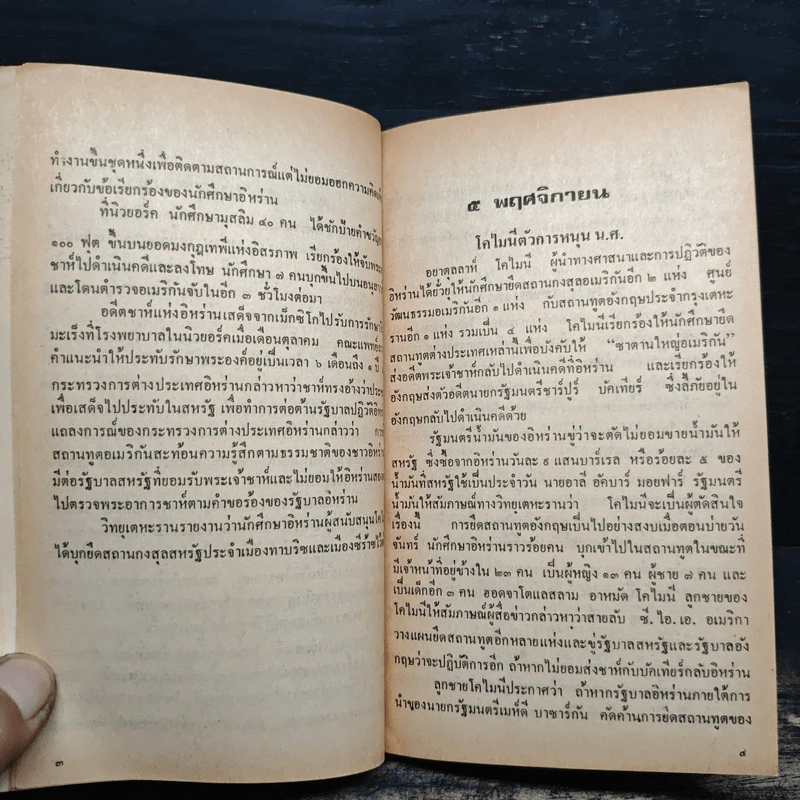 ทำงานขึ้นชุดหนึ่งเพื่อติดตามสถานการณ์แต่ไม่ยอมออกความคิดเห็น
เกี่ยวกับข้อเรียกร้องของนักศึกษาอิหร่าน
ที่นิวยอร์ค นักศึกษามุสลิม ๔๐ คน ได้ชักป้ายคำขวัญ
๑๐๐ ฟุต ขึ้นบนยอดมงกุฎเทพีแห่งอิสรภาพ เรียกร้องให้จับพระ
ชาห์ไปดำเนินคดีและลงโทษ นักศึกษา ๗ คนบุกขึ้นไปบน
และโดนตำรวจอเมริกันจับในอีก ๓ ชั่วโมงต่อมา
อดีตชาห์แห่งอิหร่านเสด็จจากเม็กซิโกไปรับการรักษา
มะเร็งที่โรงพยาบาลในนิวยอร์คเมื่อเดือนตุลาคม คณะแพทย์
คำแนะนำให้ประทับรักษาพระองค์อยู่เป็นเวลา ๖ เดือนถึง ๑ ปี
กระทรวงการต่างประเทศอิหร่านกล่าวหาว่าชาห์ทรงอ้างว่าประ
เพื่อเสด็จไปประทับในสหรัฐ เพื่อทำการต่อต้านรัฐบาลปฏิวัติ
แถลงการณ์ของกระทรวงการต่างประเทศอิหร่านกล่าวว่า การ
สถานทูตอเมริกันสะท้อนความรู้สึกตามธรรมชาติของชาวอิหร่า
มีต่อรัฐบาลสหรัฐที่ยอมรับพระเจ้าชาห์และไม่ยอมให้อิหร่าน
ไปตรวจพระอาการชาห์ตามคำขอร้องของรัฐบาลอิหร่าน
วิทยุเตหะรานรายงานว่านักศึกษาอิหร่านผู้สนับสนุนโค
ได้บุกยึดสถานกงสุลสหรัฐประจำเมืองทาบริซและเมืองซีราซไว้
๓
๕ พฤศจิกายน
โคไมนีตัวการหนุน น.ศ.
อยาตลลาห์ โคไมนี ผู้นำทางศาสนาและการปฏิวัติของ
อิหร่านได้ยั่วยุให้นักศึกษายึดสถานกงสุลอเมริกันอีก ๒ แห่ง ศูนย์
วัฒนธรรมอเมริกันอีก ๑ แห่ง กับสถานทูตอังกฤษประจำกรุงเตหะ
รานอีก ๑ แห่ง รวมเป็น ๔ แห่ง โคไมนีเรียกร้องให้นักศึกษายึด
สถานทูตต่างประเทศเหล่านี้เพื่อบังคับให้ “ซาตานใหญ่อเมริกัน”
ส่งอดีตพระเจ้าชาห์กลับไปดำเนินคดีที่อิหร่าน และเรียกร้องให้
อังกฤษส่งตัวอดีตนายกรัฐมนตรีชาร์ปูร์ บัคเทียร์ ซึ่งลี้ภัยอยู่ใน
อังกฤษกลับไปดำเนินคดีด้วย
รัฐมนตรีน้ำมันของอิหร่านขู่ว่าจะตัดไม่ยอมขายน้ำมันให้
สหรัฐ ซึ่งซื้อจากอิหร่านวันละ ๙ แสนบาร์เรล หรือร้อยละ ๕ ของ
น้ำมันที่สหรัฐใช้เป็นประจำวัน นายอาลี อัคบาร์ มอยฟาร์ รัฐมนตรี
น้ำมันให้สัมภาษณ์ทางวิทยุเตหะรานว่า โคไมนีจะเป็นผู้ตัดสินใจ
เรื่องนี้ การยึดสถานทูตอังกฤษเป็นไปอย่างสงบเมื่อตอนบ่ายวัน
จันทร์ นักศึกษาอิหร่านราวร้อยคน บุกเข้าไปในสถานทูตในขณะที่
มีเจ้าหน้าที่อยู่ข้างใน ๒๓ คน เป็นผู้หญิง ๑๓ คน ผู้ชาย ๗ คน และ
เป็นเด็กอีก ๓ คน ฮอดจาโตแลสลาม อาหมัด โคไมนี ลูกชายของ
โคไมนีให้สัมภาษณ์ผู้สื่อข่าวกล่าวหาว่าสายลับ ซี.ไอ.เอ. อเมริกา
วางแผนยึดสถานทูตอีกหลายแห่งและขู่รัฐบาลสหรัฐและรัฐบาลอัง
กฤษว่าจะปฏิบัติการอีก ถ้าหากไม่ยอมส่งชาห์กับบัคเทียร์กลับอิหร่าน
ลูกชายโคไมนีประกาศว่า ถ้าหากรัฐบาลอิหร่านภายใต้การ
นำของนายกรัฐมนตรีเมห์ดี บาซาร์กัน คัดค้านการยึดสถานทูตของ
๔